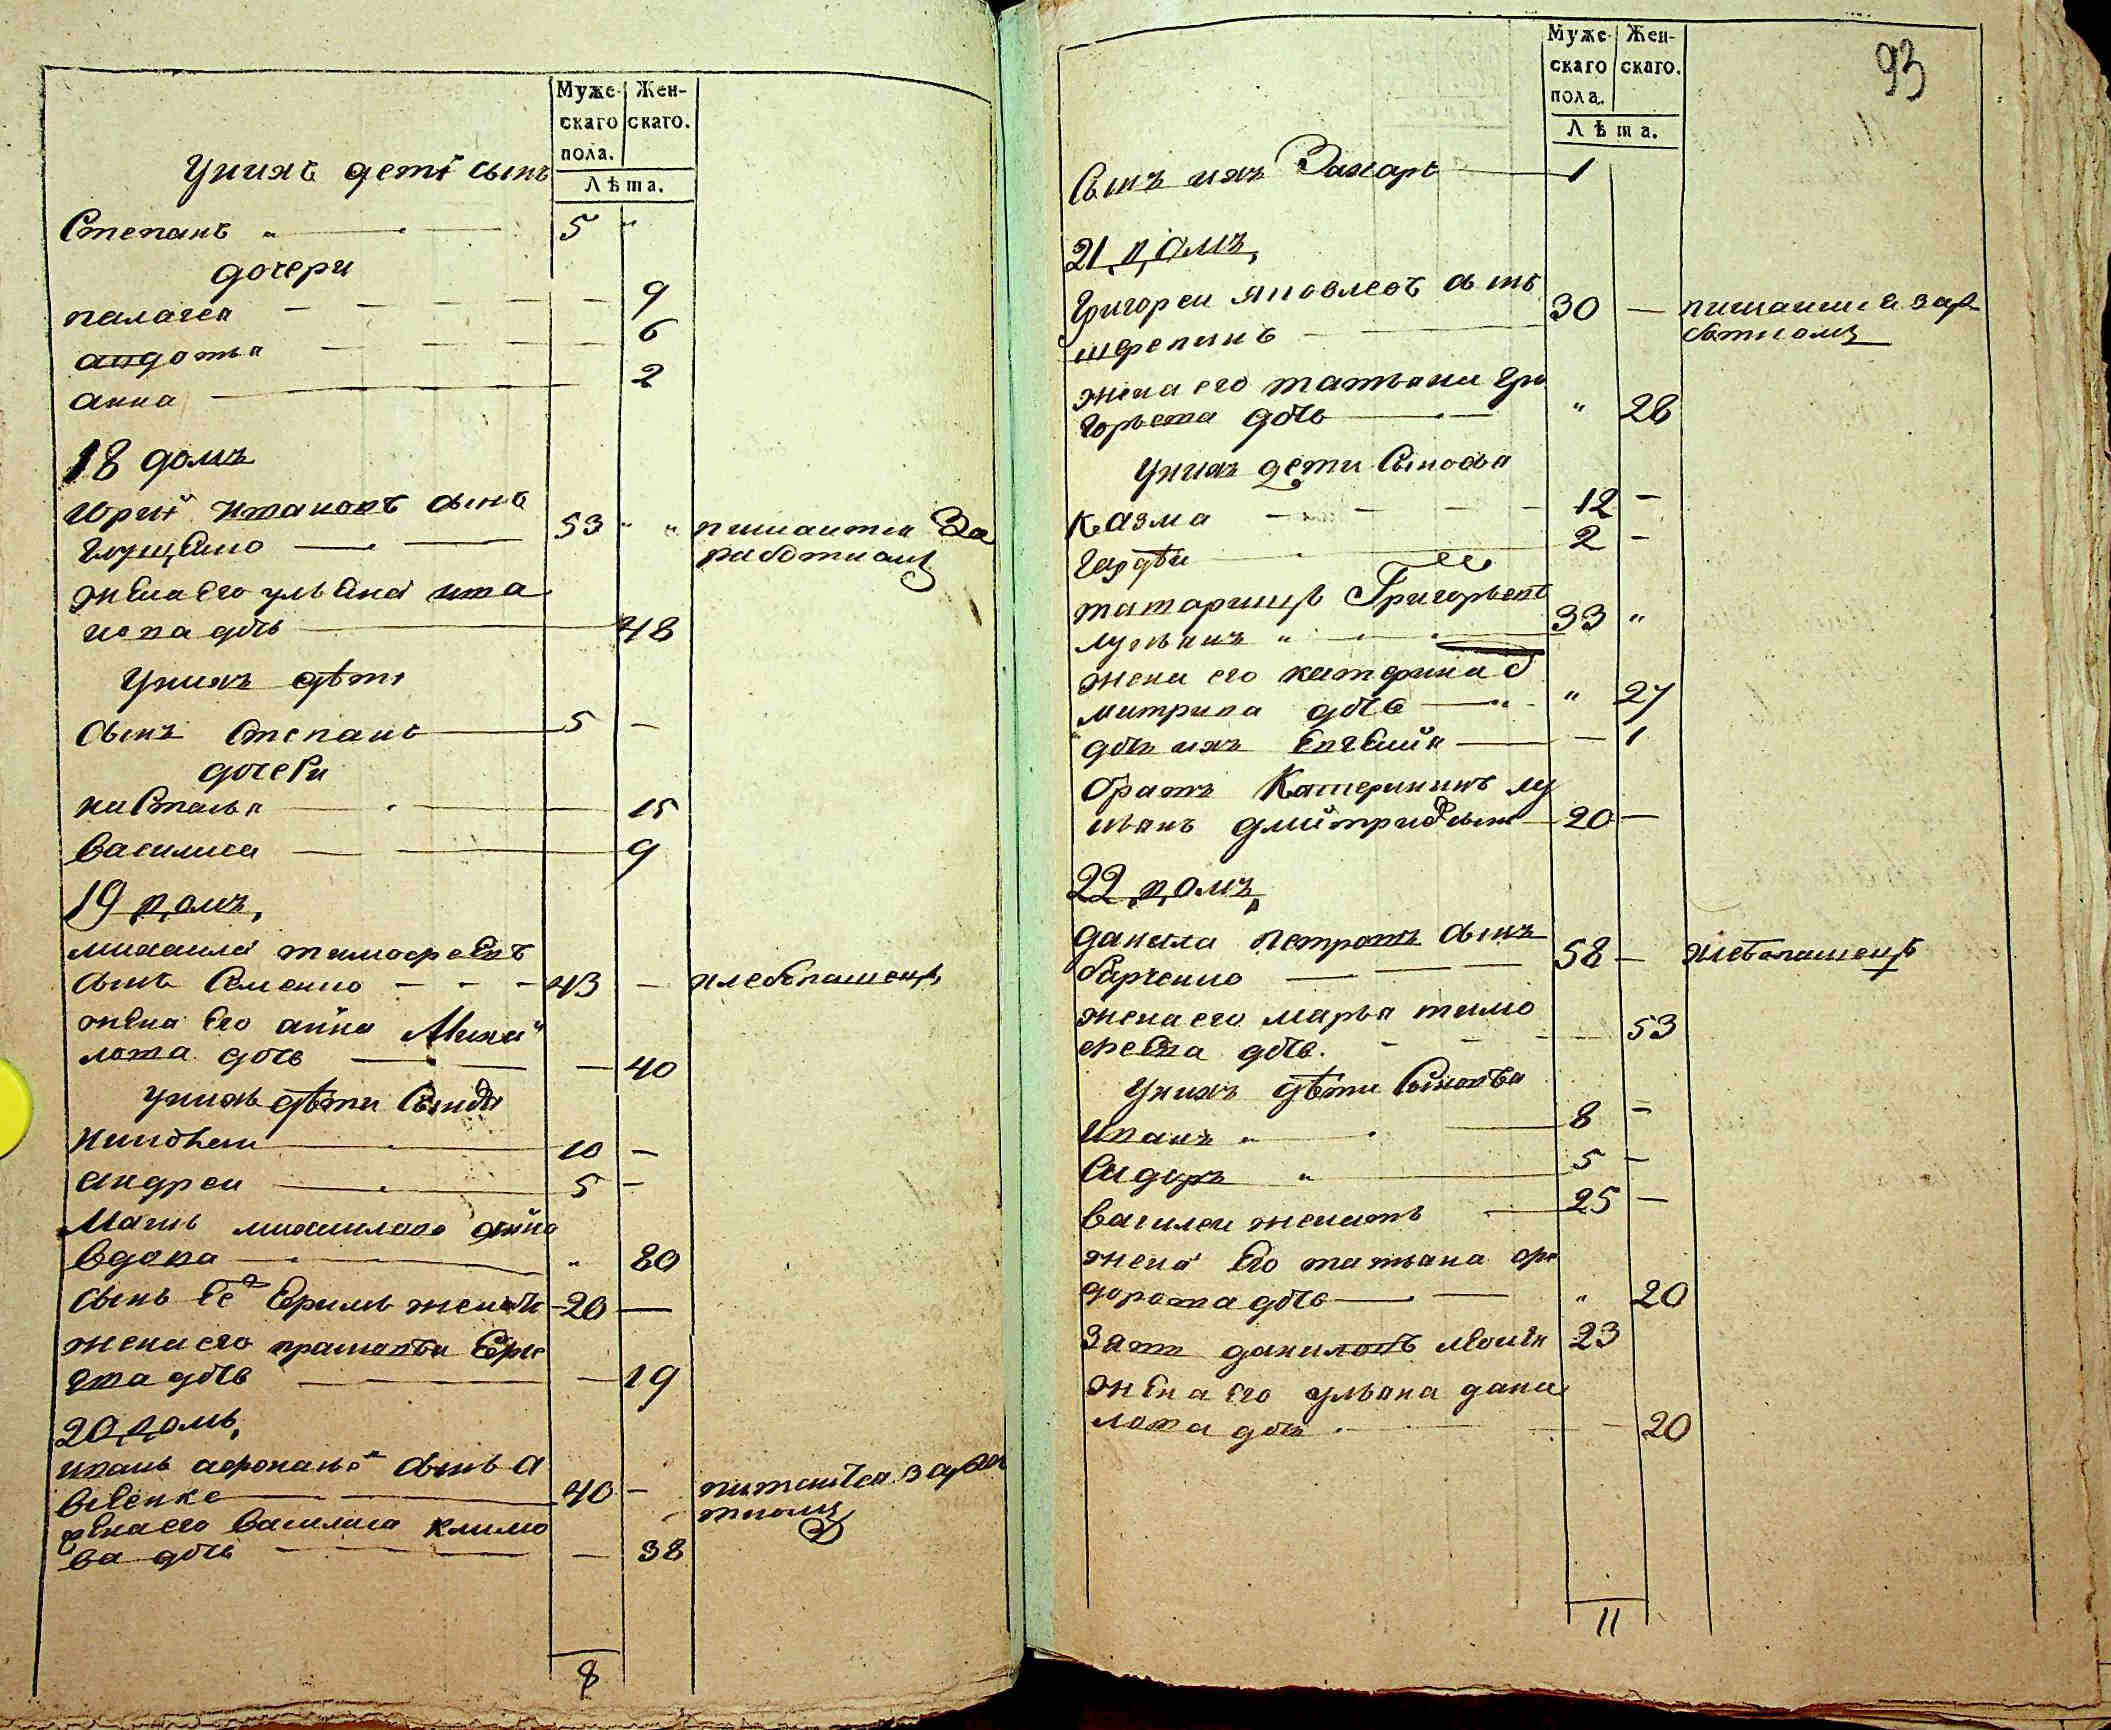 Муже-
скаго
пола.
Жен-
скаго.
Лѣта.
Унихъ дети сынъ
Степанъ 5
дочери
палагея 9
авдотья 6
анна 2
18 домъ
юрий ивановъ сынъ
53 питаится За
работкомъ
жена его ульяна ива
нова дочь 48
Унихъ дѣти
сынъ Степанъ 5
дочери
настасья 15
василиса 9
19 домъ,
михаила тимофеевъ
сынъ Семенко 43 хлебопашецъ
жена его анна Михаи
лова дочь 40
Унихъ дѣти Сынови
10
андреи 5
Мать михаилова анна
вдова 80
сынъ Ее Ефимъ женатъ 20
жена его прасковья
ева дочь 19
20 домъ,
иванъ афонанов сынъ
40 питаится зарабо
ткомъ
жена его василиса климо
ва дочь 38
8
93
Муже-
скаго
пола.
Жен-
скаго.
Лѣта.
Сынъ ихъ Захаръ 1
21 домъ,
Григореи яковлевъ сынъ
30 питаится зара
боткомъ
жена его татьяна гри
горьева дочь 28
Унихъ дети Сыновья
Казма 12
2
Григорьевъ
лукьянъ 33
жена его катерина д
митрива дочь 27
дочь ихъ Евгения 1
братъ Катерининъ лу
кьянъ дмитривъ сынъ 20
22 домъ,
данила петровъ сынъ
58 хлебопашецъ
жена его марья тимо
феева дочь. 53
Унихъ дѣти Сыновья
иванъ 8
Сидоръ 5
василеи женатъ 25
жена Его татьяна фе
дорова дочь 20
Зять даниловъ 23
жена его ульяна дани
лова дочь 20
11